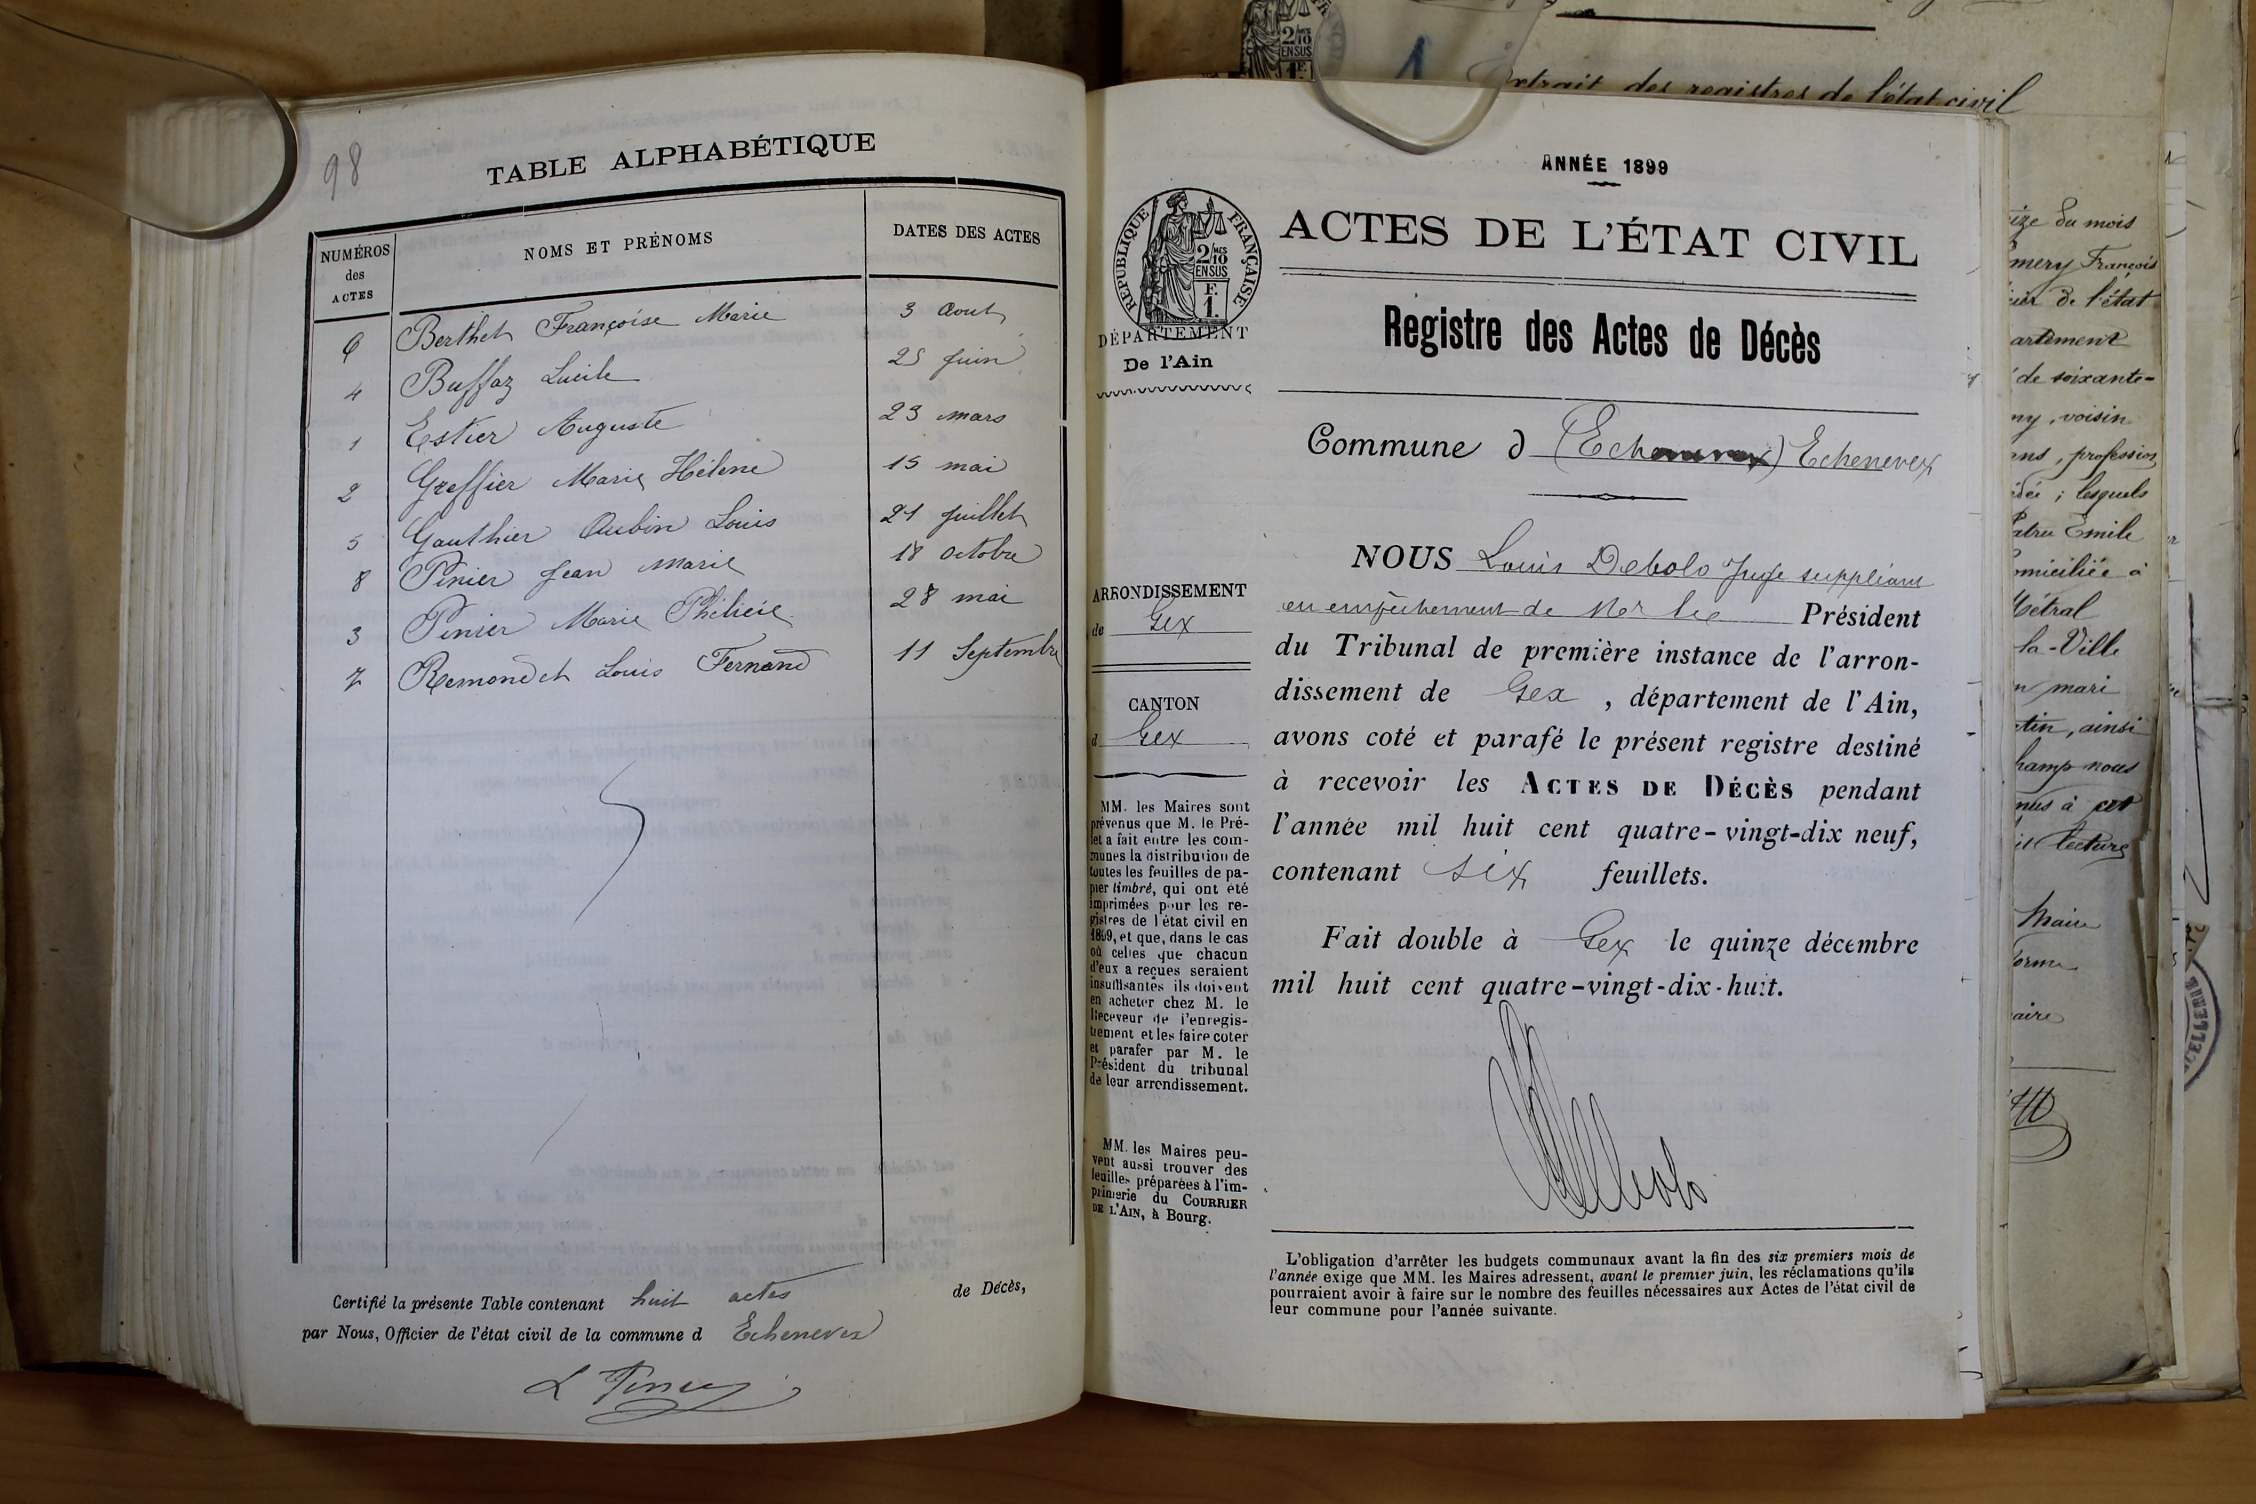 98
TABLE ALPHABÉTIQUE
NUMÉROS des ACTES
NOMS ET PRÉNOMS
DATES DES ACTES
6 Berthet Françoise Marie 3 Aout
4 Buffaz Lucile 25 juin
1 Estier Auguste 23 mars
2 Greffier Marie Hélène 15 mai
5 Gauthier Aubin Louis 21 juillet
8 Pinier Jean Marie 18 octobre
3 Pinier Marie Philicie 28 mai
7 Remondet Louis Fernand 11 Septembre
Certifié la présente Table contenant huit actes de Décès,
par Nous, Officier de l'état civil de la commune d Echenevex
Extrait des registres de l'état civil
ANNÉE 1899
RÉPUBLIQUE FRANÇAISE
2/10 MES
EN SUS
F.
1.
DÉPARTEMENT
De l'Ain
ARRONDISSEMENT
de Gex
CANTON
d Gex
MM. les Maires sont
prévenus que M. le Pré-
fet a fait entre les com-
munes la distribution de
toutes les feuilles de pa-
pier timbré, qui ont été
imprimées pour les re-
gistres de l'état civil en
1899, et que, dans le cas
où celles que chacun
d'eux a reçues seraient
insuffisantes ils doivent
en acheter chez M. le
Receveur de l'enregis-
trement et les faire coter
et parafer par M. le
Président du tribunal
de leur arrondissement.
MM. les Maires peu-
vent aussi trouver des
feuilles préparées à l'im-
primerie du COURRIER
DE L'AIN, à Bourg.
ACTES DE L'ÉTAT CIVIL
Registre des Actes de Décès
Commune d Echenevex
NOUS Louis Debolo Juge suppléant
en empêchement de Mr le Président
du Tribunal de première instance de l'arron-
dissement de Gex , département de l'Ain,
avons coté et parafé le présent registre destiné
à recevoir les ACTES DE DÉCÈS pendant
l'année mil huit cent quatre-vingt-dix neuf,
contenant six feuillets.
Fait double à Gex le quinze décembre
mil huit cent quatre-vingt-dix-huit.
L'obligation d'arrêter les budgets communaux avant la fin des six premiers mois de
l'année exige que MM. les Maires adressent, avant le premier juin, les réclamations qu'ils
pourraient avoir à faire sur le nombre des feuilles nécessaires aux Actes de l'état civil de
leur commune pour l'année suivante.
du mois
François
de l'état
de soixante-
voisin
profession
lesquels
Emile
domiciliée à
Métral
la-Ville
mari
ainsi
champ nous
à cet
lecture
Maire